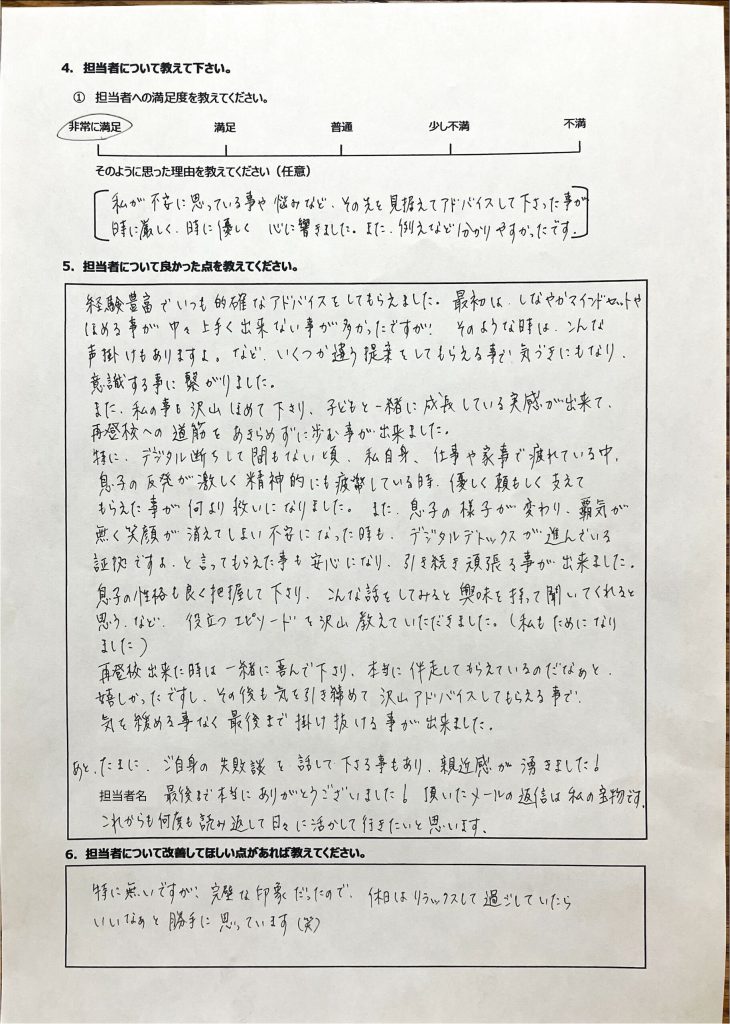 4. 担当者について教えて下さい。
① 担当者への満足度を教えてください。
非常に満足 満足 普通 少し不満 不満
そのように思った理由を教えてください（任意）
私が不安に思っている事や悩みなど、その先を見据えてアドバイスして下さった事が
時に厳しく、時に優しく 心に響きました。また、例えなど分かりやすかったです。
5. 担当者について良かった点を教えてください。
経験豊富でいつも的確なアドバイスをしてもらえました。最初は、しなやかマインドセットや
ほめる事が中々上手く出来ない事が多かったですが、そのような時は、こんな
声掛けもありますよ。など、いくつか違う提案をしてもらえる事で気づきにもなり、
意識する事に繋がりました。
また、私の事も沢山ほめて下さり、子どもと一緒に成長している実感が出来て、
再登校への道筋をあきらめずに歩む事が出来ました。
特に、デジタル断ちして間もない頃、私自身、仕事や家事で疲れている中、
息子の反発が激しく精神的にも疲弊している時、優しく頼もしく支えて
もらえた事が何より救いになりました。また、息子の様子が変わり、覇気が
無く笑顔が消えてしまい不安になった時も、デジタルデトックスが進んでいる
証拠ですよ、と言ってもらえた事も安心になり、引き続き頑張る事が出来ました。
息子の性格も良く把握して下さり、こんな話をしてみると興味を持って聞いてくれると
思う、など、役立つエピソードを沢山教えていただきました。（私もためになり
ました）
再登校出来た時は一緒に喜んで下さり、本当に伴走してもらえているのだなぁと、
嬉しかったですし、その後も気を引き締めて沢山アドバイスしてもらえる事で、
気を緩める事なく最後まで掛け抜ける事が出来ました。
あと、たまに、ご自身の失敗談を話して下さる事もあり、親近感が湧きました！
担当者名 最後まで本当にありがとうございました！頂いたメールの返信は私の宝物です。
これからも何度も読み返して日々に活かして行きたいと思います。
6. 担当者について改善してほしい点があれば教えてください。
特に無いですが、完璧な印象だったので、休日はリラックスして過ごしていたら
いいなぁと勝手に思っています（笑）